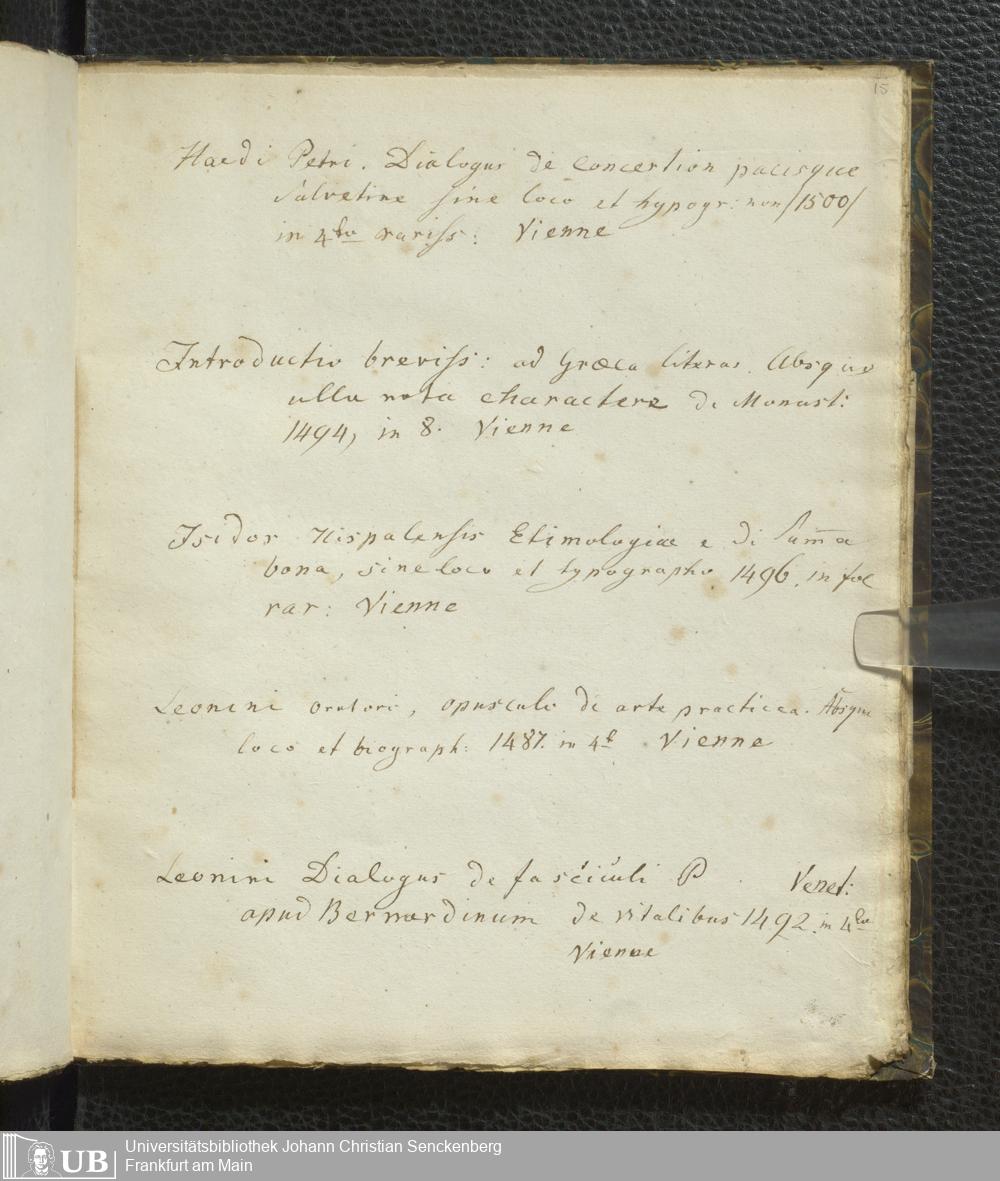 15
Haedi Petri. Dialogus de concertion pacisque
Salvetine sine loco et typogr: non /1500/
in 4to rariss: Vienne
Introductio breviss: ad Græca literas. Absque
ulla nota charactere di Monast:
1494, in 8. Vienne
Isidor Hispalensis Etimologiae e di Sum̅a
bona, sine loco et typographo 1496. in fol
rar: Vienne
Leonini oratori, opusculo de arte practicea. Absque
loco et biograph: 1487. in 4t Vienne
Leonini Dialogus de fasciculi P Venet:
apud Bernardinum de vitalibus 1492. in 4to
Vienne
UB Universitätsbibliothek Johann Christian Senckenberg
Frankfurt am Main